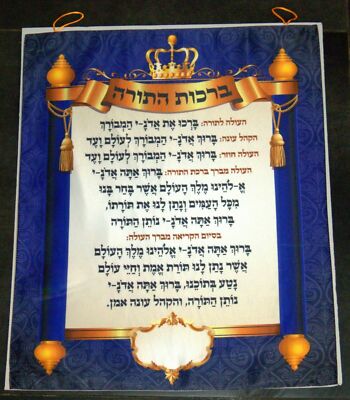 ברכות התורה
העולה לתורה: בָּרְכוּ אֶת אֲדֹנָ-י הַמְבוֹרָךְ
הקהל עונה: בָּרוּךְ אֲדֹנָ-י הַמְבוֹרָךְ לְעוֹלָם וָעֶד
העולה חוזר: בָּרוּךְ אֲדֹנָ-י הַמְבוֹרָךְ לְעוֹלָם וָעֶד
העולה מברך ברכת התורה: בָּרוּךְ אַתָּה אֲדֹנָ-י
אֱ-לֹהֵינוּ מֶלֶךְ הָעוֹלָם אֲשֶׁר בָּחַר בָּנוּ
מִכָּל הָעַמִּים וְנָתַן לָנוּ אֶת תּוֹרָתוֹ,
בָּרוּךְ אַתָּה אֲדֹנָ-י נוֹתֵן הַתּוֹרָה
בסיום הקריאה מברך העולה:
בָּרוּךְ אַתָּה אֲדֹנָ-י אֱלֹהֵינוּ מֶלֶךְ הָעוֹלָם
אֲשֶׁר נָתַן לָנוּ תּוֹרַת אֱמֶת וְחַיֵּי עוֹלָם
נָטַע בְּתוֹכֵנוּ, בָּרוּךְ אַתָּה אֲדֹנָ-י
נוֹתֵן הַתּוֹרָה, והקהל עונה אמן.